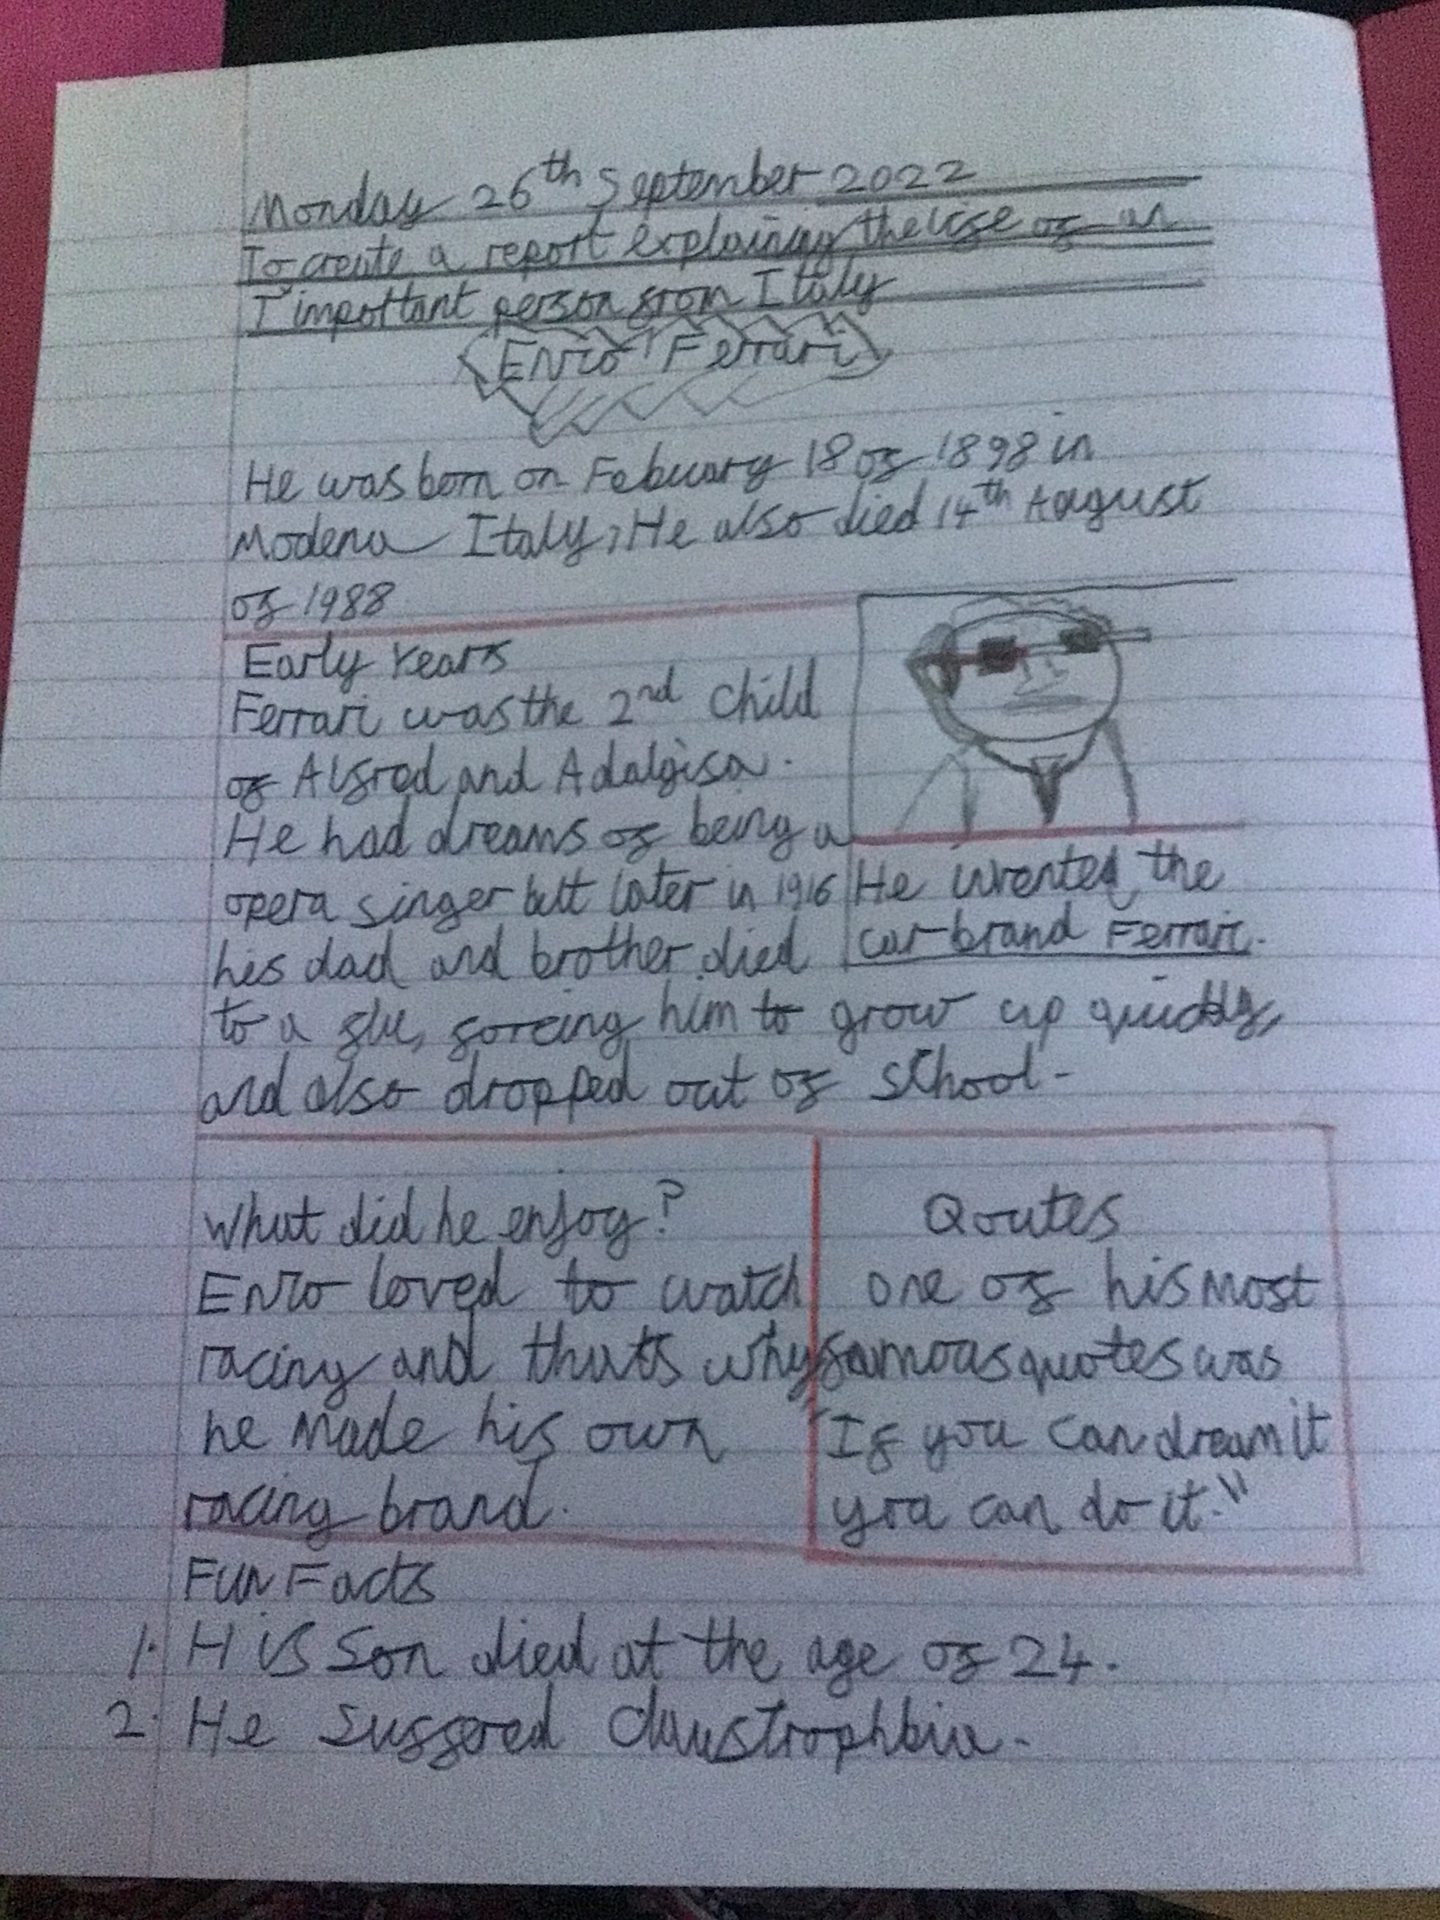 Monday 26th September 2022
To create a report explaining the life of an
important person from Italy
Enzo Ferrari
He was born on Febuary 18 of 1898 in
Modena Italy, He also died 14th August
of 1988
Early Years
Ferrari was the 2nd child
of Alfred and Adalgisa.
He had dreams of being a
opera singer but later in 1916
his dad and brother died
to a flu, forcing him to grow up quickly,
and also dropped out of school.
He wrented the
car brand Ferrari.
What did he enjoy?
Enzo loved to watch
racing and thats why
he made his own
racing brand.
Qoutes
one of his most
famous quotes was
"If you can dream it
you can do it."
Fun Facts
1. His Son died at the age of 24.
2. He suffered claustrophbia.